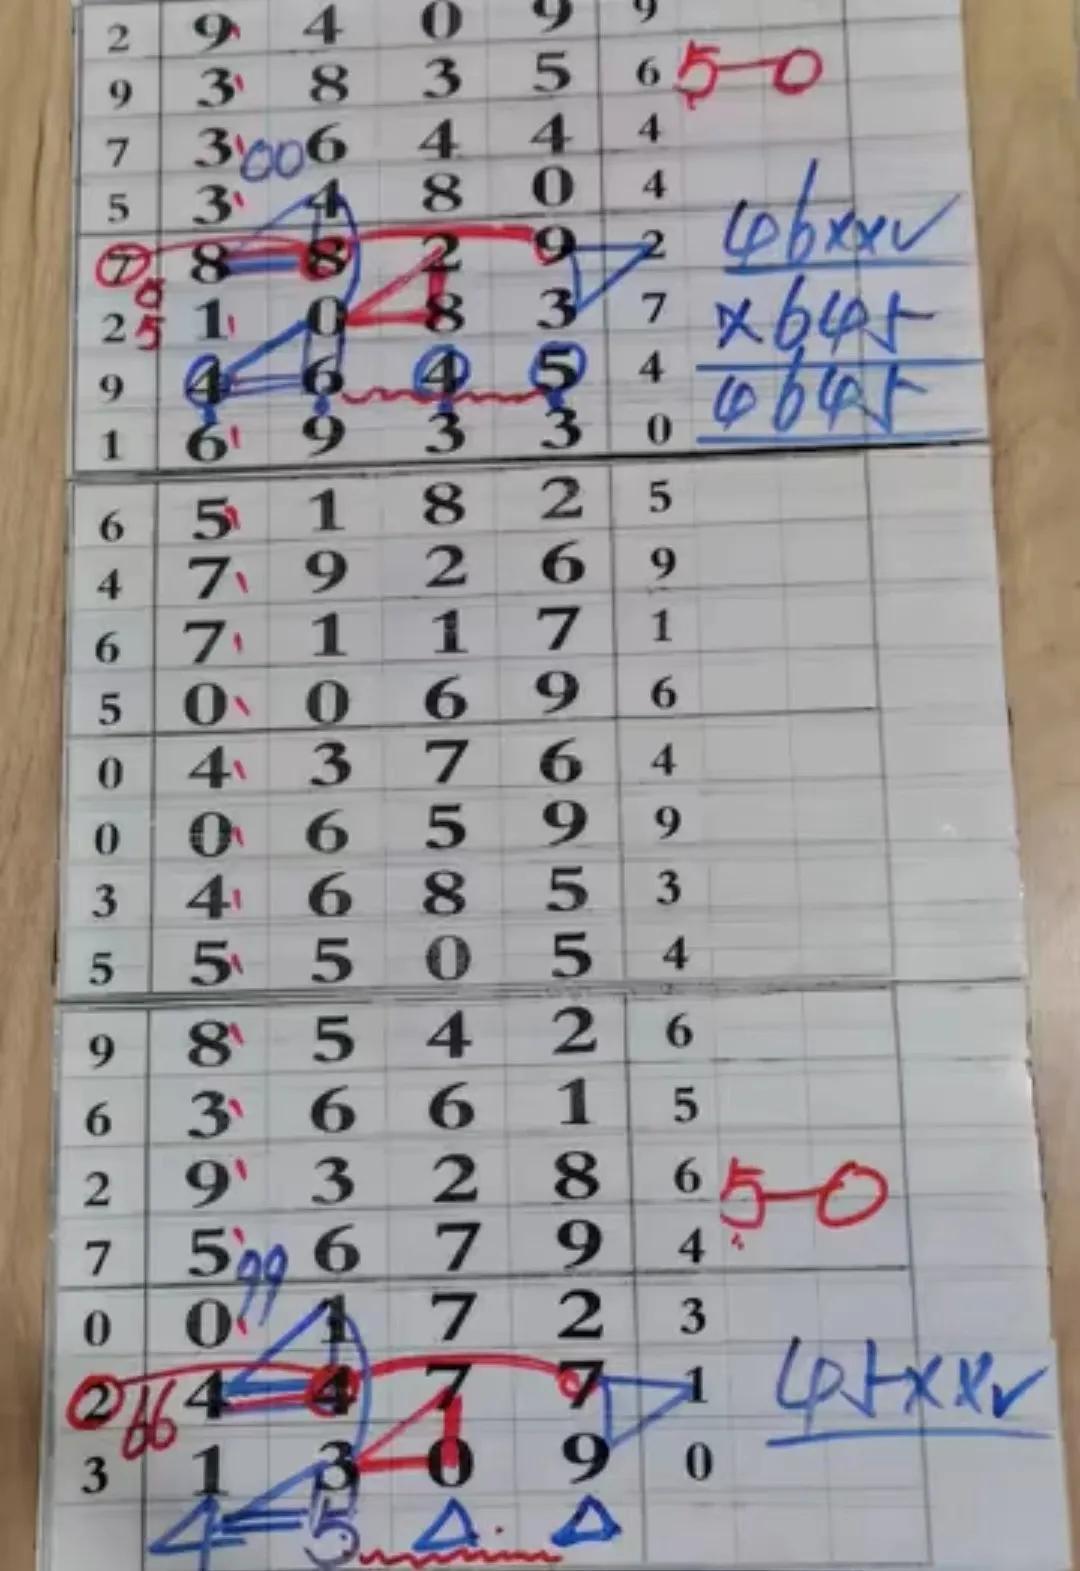 2 9 4 0 9 9
9 3 8 3 5 6 5—0
7 3 00 6 4 4 4
5 3 4 8 0 4
7 8 8 2 9 2 46xxv
2 5 1 0 8 3 7 x645
9 4 6 4 5 4 4645
1 6 9 3 3 0
6 5 1 8 2 5
4 7 9 2 6 9
6 7 1 1 7 1
5 0 0 6 9 6
0 4 3 7 6 4
0 0 6 5 9 9
3 4 6 8 5 3
5 5 5 0 5 4
9 8 5 4 2 6
6 3 6 6 1 5
2 9 3 2 8 6 5—0
7 5 6 7 9 4
0 0 99 1 7 2 3
2 66 4 4 7 7 1 45xxv
3 1 3 0 9 0
4 5 Δ Δ